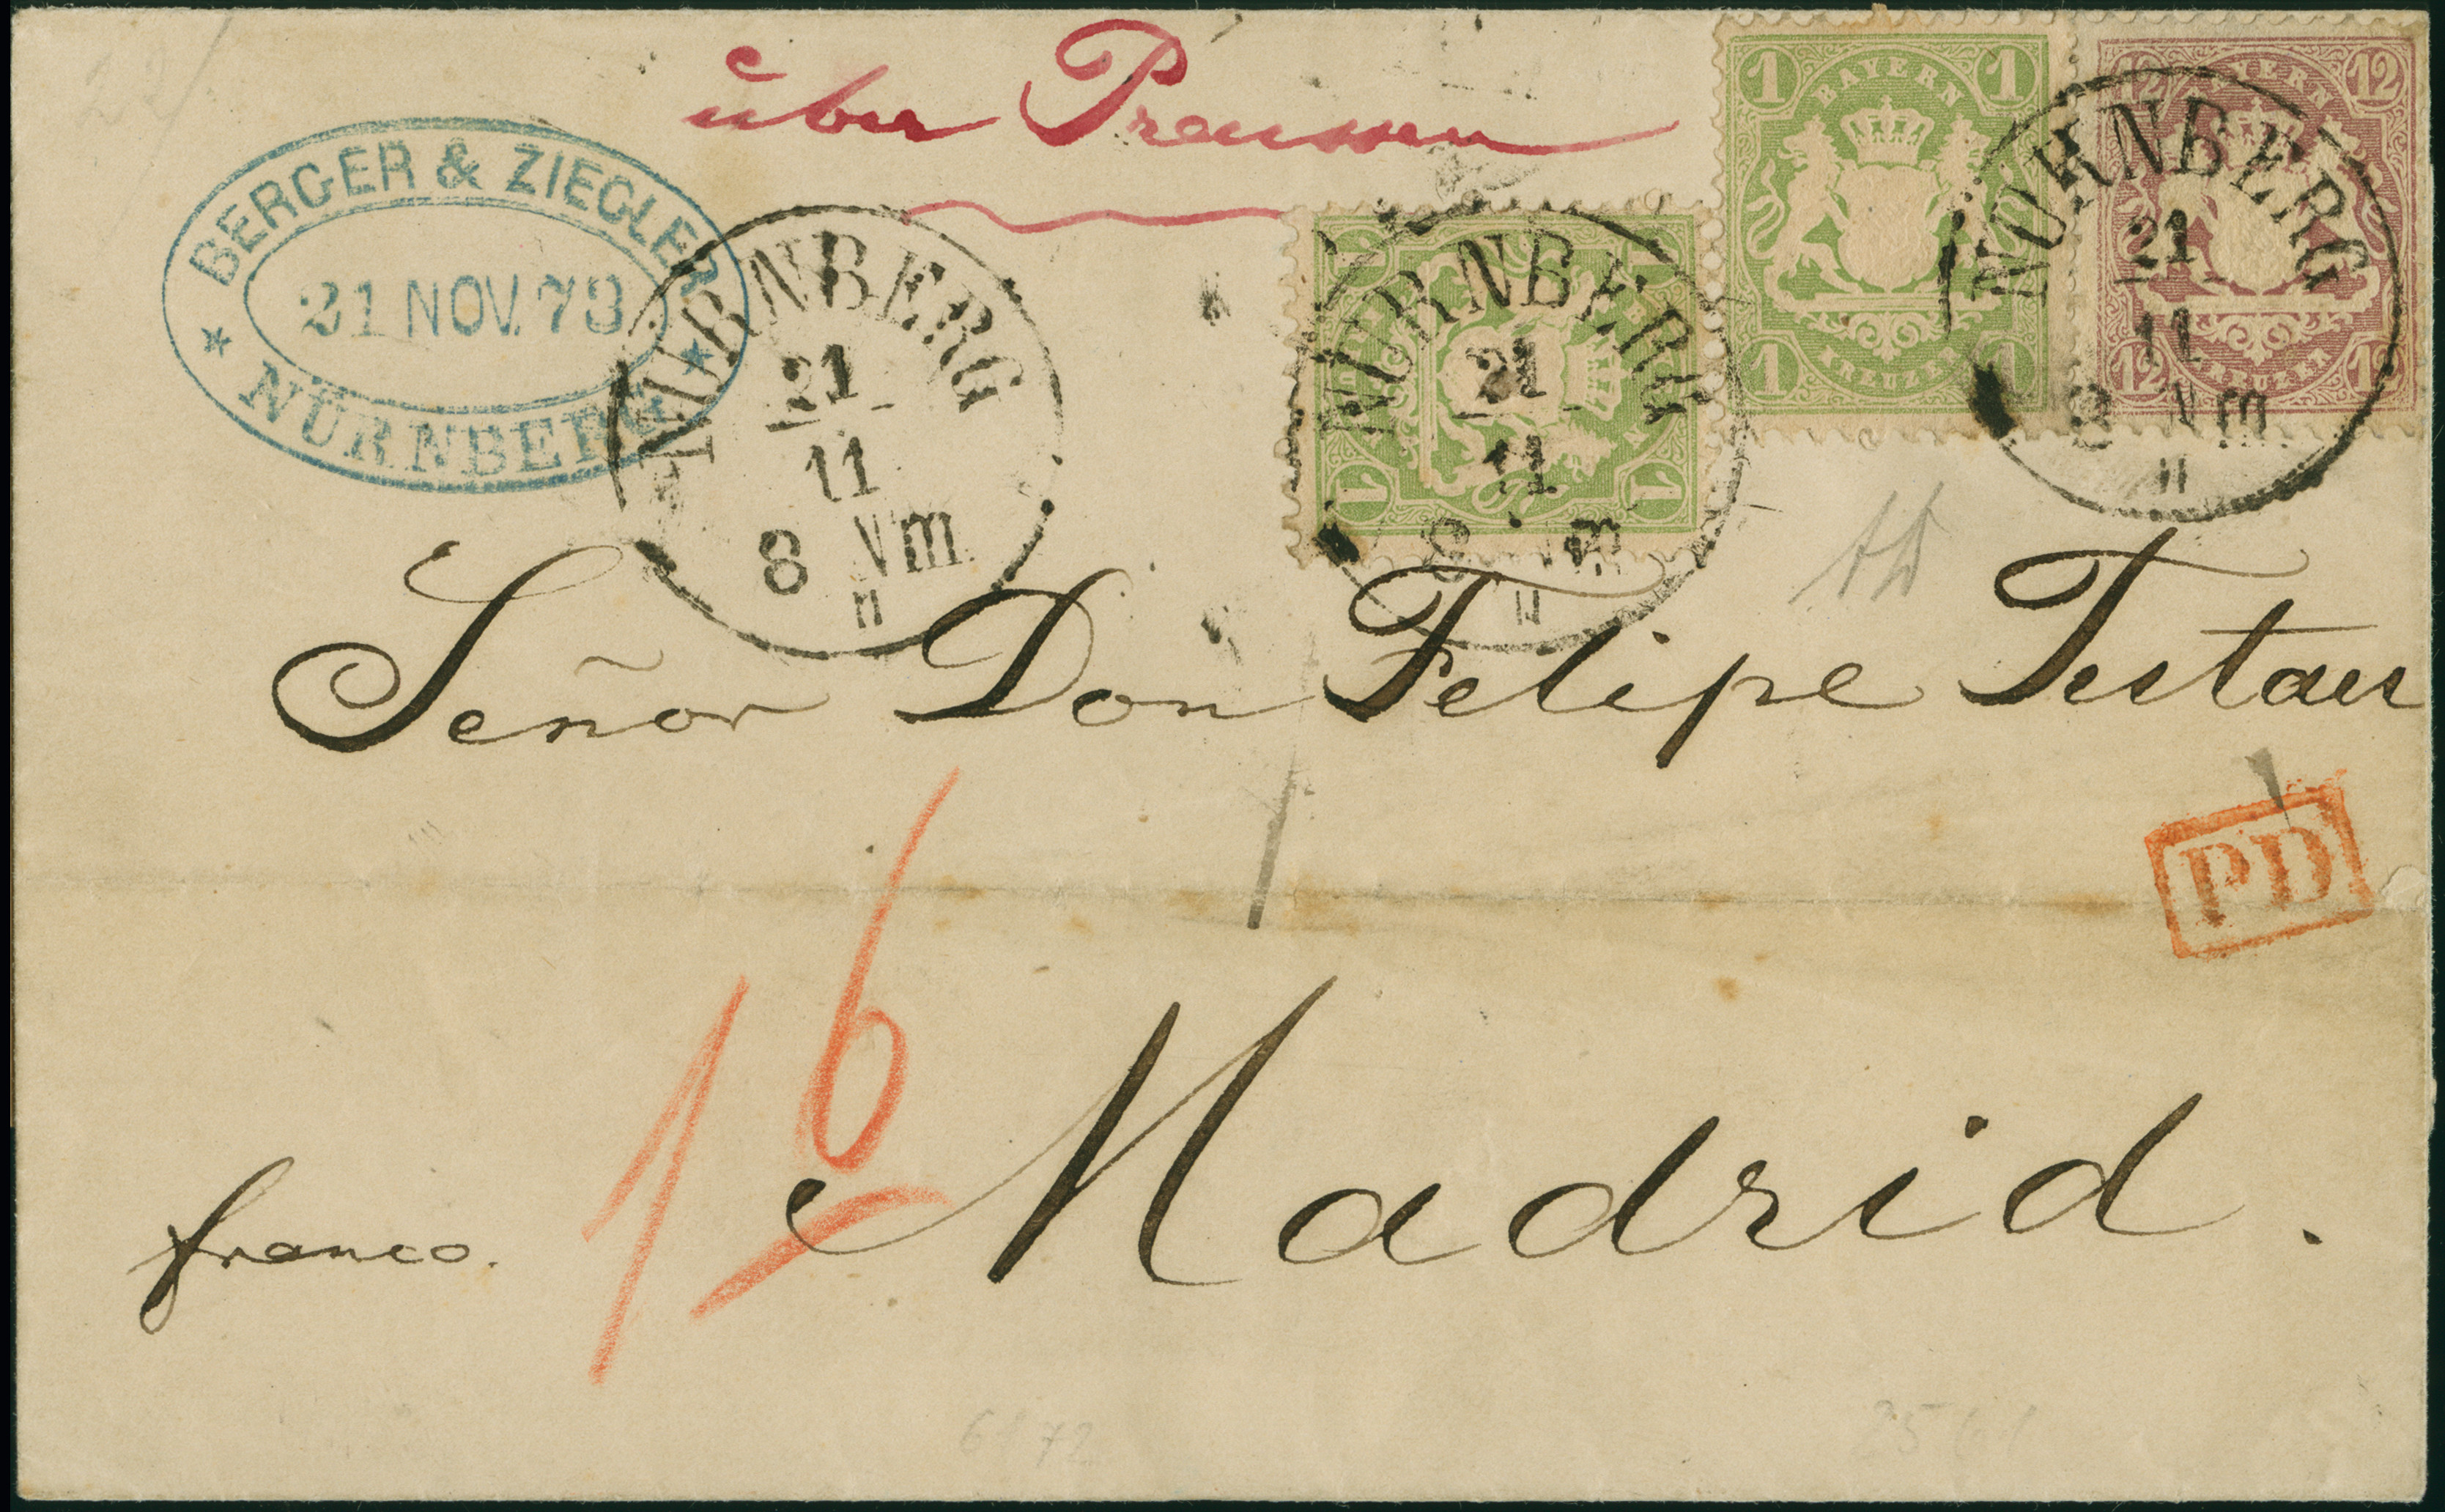 über Preussen
BERGER & ZIEGLER
21 NOV. 73
NÜRNBERG
NÜRNBERG
21
11
8 Nm
II
NÜRNBERG
21
11
8 Nm
II
1 1
BAYERN
KREUZER
1 1
1 BAYERN 1
1 KREUZER 1
12 BAYERN 12
12 KREUZER 12
NÜRNBERG
21
11
8 Nm
II
Señor Don Felipe
PD
16
franco. Madrid.